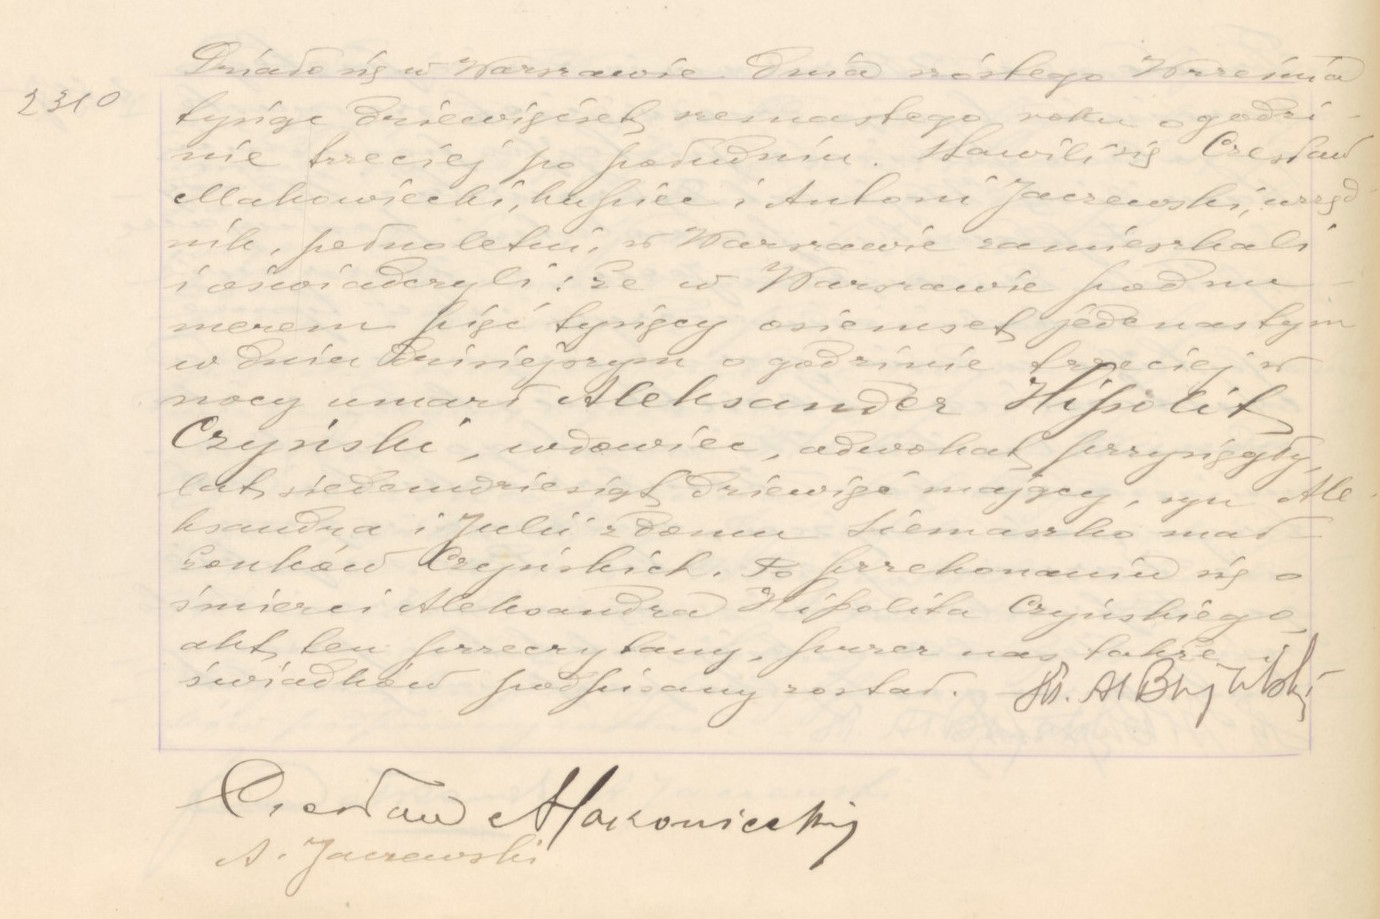 Działo się w Warszawie dnia szóstego Września
2310
tysiąc dziewięćset szesnastego roku o godzi-
nie trzeciej po południu. Stawili się Czesław
Makowiecki, kupiec i Antoni Jaczewski, urzęd
nik, pełnoletni, w Warszawie zamieszkali
i oświadczyli: że w Warszawie pod nu-
merem pięć tysięcy osiemset jedenastym
w dniu dzisiejszym o godzinie trzeciej w
nocy umarł Aleksander Hipolit
Czyński, wdowiec, adwokat przysięgły,
lat siedemdziesiąt dziewięć mający, syn Ale-
ksandra i Julii z domu Siemaszko mał-
żonków Czyńskich. Po przekonaniu się o
śmierci Aleksandra Hipolita Czyńskiego
akt ten przeczytany, przez nas także i
świadków podpisany został. Ks. Al
Czesław Makowiecki
A. Jaczewski